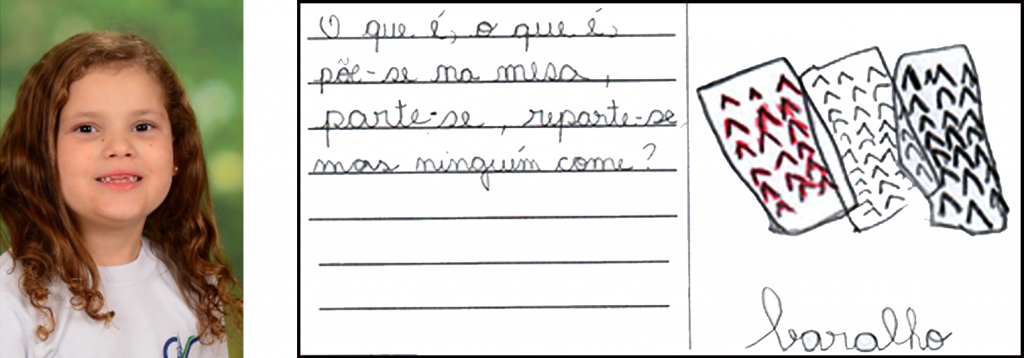 O que é, o que é,
põe-se na mesa,
parte-se, reparte-se
mas ninguém come?
baralho